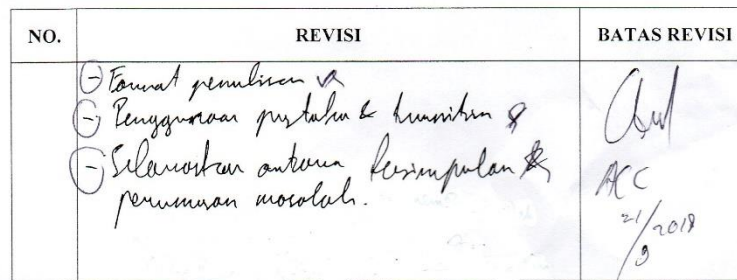 NO. REVISI BATAS REVISI
- Format penulisan
- Penggunaan pustaka &
- Selaraskan antara kesimpulan &
perumusan masalah.
ACC
21/9 2018